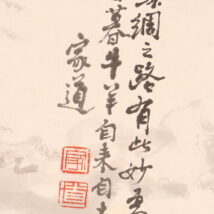 綢之路有此妙
暮牛羊自来自
家道
家
道